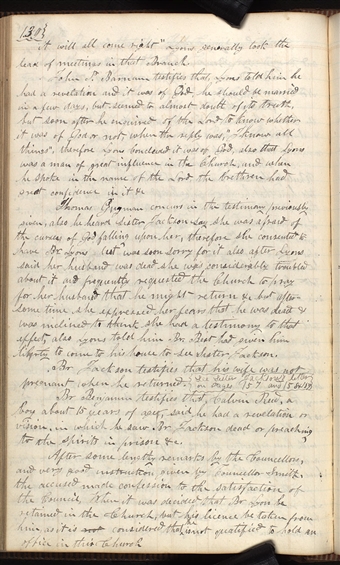 (130)
it will all come right" Lyons, generally took the
lead of meetings in that Branch.
John P. Barnum testifies that, Lyons told him he
had a revelation and it was of God, he should be married
in a few days, but seemed to almost doubt of its truth,
but soon after he enquired of the Lord, to know whether
it was of God or not, when the reply was, "I know all
things". therefore Lyons concluded it was of God, also that Lyons
was a man of great influence in the Church, and when
he spoke in the name of the Lord the brethren had
great confidence in it &
Thomas concurs in the testimony previously
given, also he heard Sister Jackson say she was afraid of
the curses of God falling upon her, therefore she consented to
have Dr Lyons but was soon sorry for it also, after Lyons
said her husband was dead she was considerably troubled
about it and frequently requested the Church to pray
for her husband that he might return & but after
some time, she expressed her fears that he was dead &
was inclined to think she had a testimony to that
effect, also Lyons told him Br Best had given him
liberty to come to his house to see Sister Jackson.
Br. Jackson testifies that his wife was not
pregnant when he returned. See Sister Jackson's letter
on Pages 157 and 158
Br Benjamin testifies that, Calvin Reed, a
boy about 15 years of age, said he had a revelation or
vision, in which he saw Br Jackson dead or preaching
to the spirits in prison &c.
After some lengthy remarks by the Councellors,
and very good instruction given by Councellor Smith
the accused made confession to the satisfaction of
the Council, When it was decided that Br Lyons be
retained in the Church, but his licence be taken from
him as it is not considered that he is not qualified to hold an
office in this Church